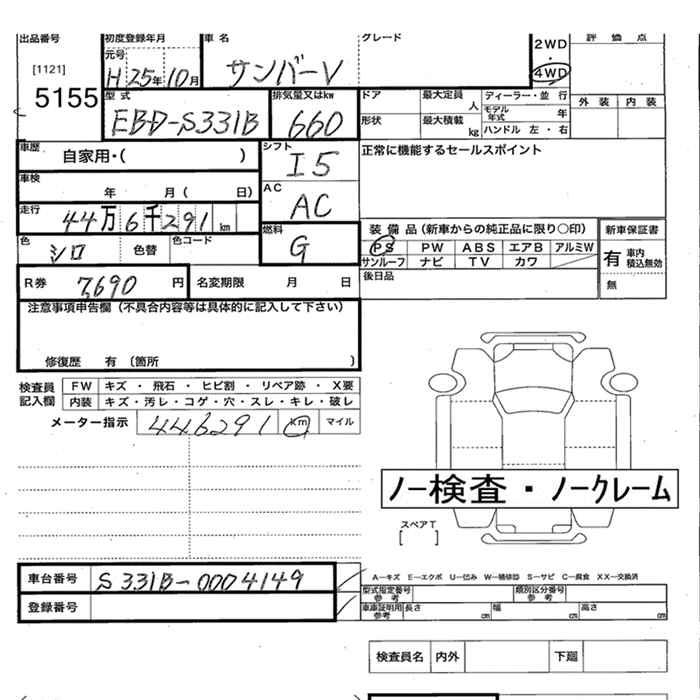 出品番号 初度登録年月 車名 グレード 2WD 評価点
元号
[1121] H 25年10月 サンバーV 4WD
5155 型式 排気量又はkw ドア 最大定員 人 ディーラー・並行 外装 内装
EBD-S331B 660 モデル年式 年
形状 最大積載 kg ハンドル 左・右
車歴 自家用・( ) シフト I5 正常に機能するセールスポイント
車検 年 月( 日) AC AC
走行 44万6千291km 燃料 G 装備品(新車からの純正品に限り○印) 新車保証書
色 シロ 色替 色コード PS PW ABS エアB アルミW 有 車内積込無効
サンルーフ ナビ TV カワ
R券 7,690 円 名変期限 月 日 後日品 無
注意事項申告欄(不具合内容等は具体的に記入して下さい)
修復歴 有 (箇所 )
検査員 FW キズ・飛石・ヒビ割・リペア跡・X要
記入欄 内装 キズ・汚レ・コゲ・穴・スレ・キレ・破レ
メーター指示 446291 km マイル
ノー検査・ノークレーム
スペアT
[ ]
車台番号 S331B-0004149 A-キズ E-エクボ U-凹み W-補修跡 S-サビ C-腐食 XX-交換済
型式指定番号 参考 類別区分番号 参考
登録番号 車庫証明用 参考 長さ cm 幅 cm 高さ cm
検査員名 内外 下廻